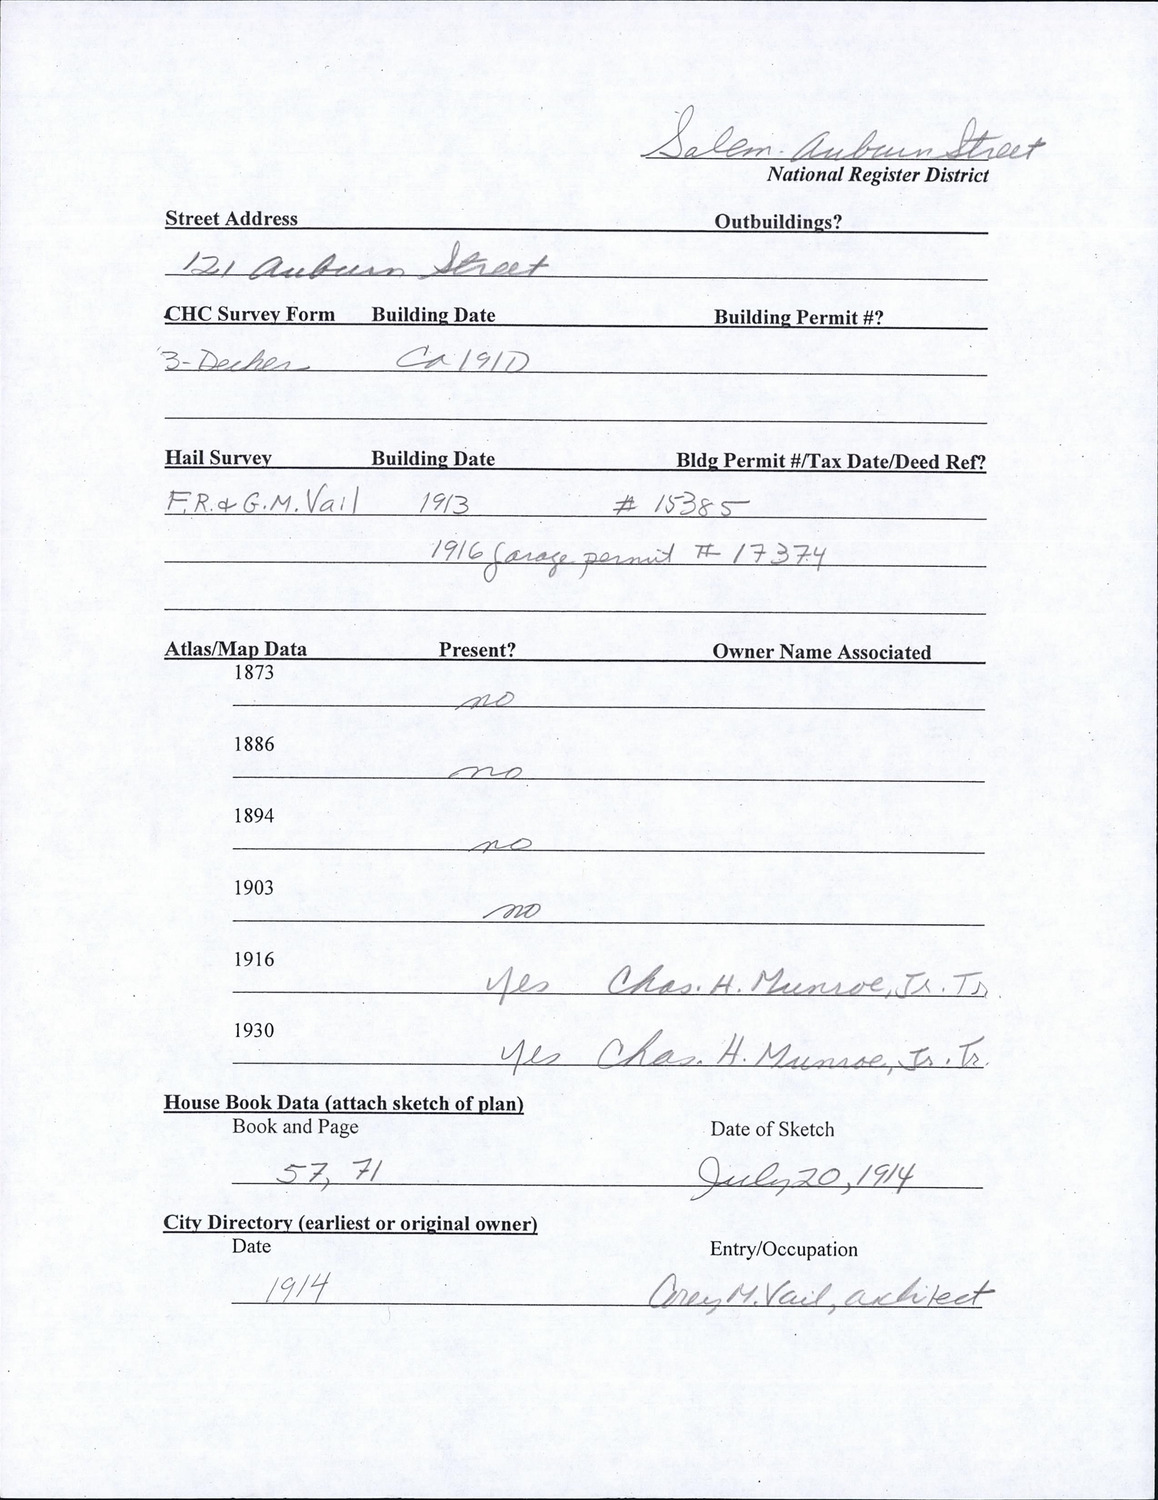 Salem-Auburn Street
National Register District
Street Address Outbuildings?
121 Auburn Street
CHC Survey Form Building Date Building Permit #?
3-Decker Ca 1910
Hail Survey Building Date Bldg Permit #/Tax Date/Deed Ref?
F.R. & G.M. Vail 1913 # 15385
1916 garage permit # 17374
Atlas/Map Data Present? Owner Name Associated
1873
no
1886
no
1894
no
1903
no
1916
yes Chas. H. Munroe, Jr. Tr.
1930
yes Chas. H. Munroe, Jr. Tr.
House Book Data (attach sketch of plan)
Book and Page Date of Sketch
57, 71 July 20, 1914
City Directory (earliest or original owner)
Date Entry/Occupation
1914 M. Vail, architect